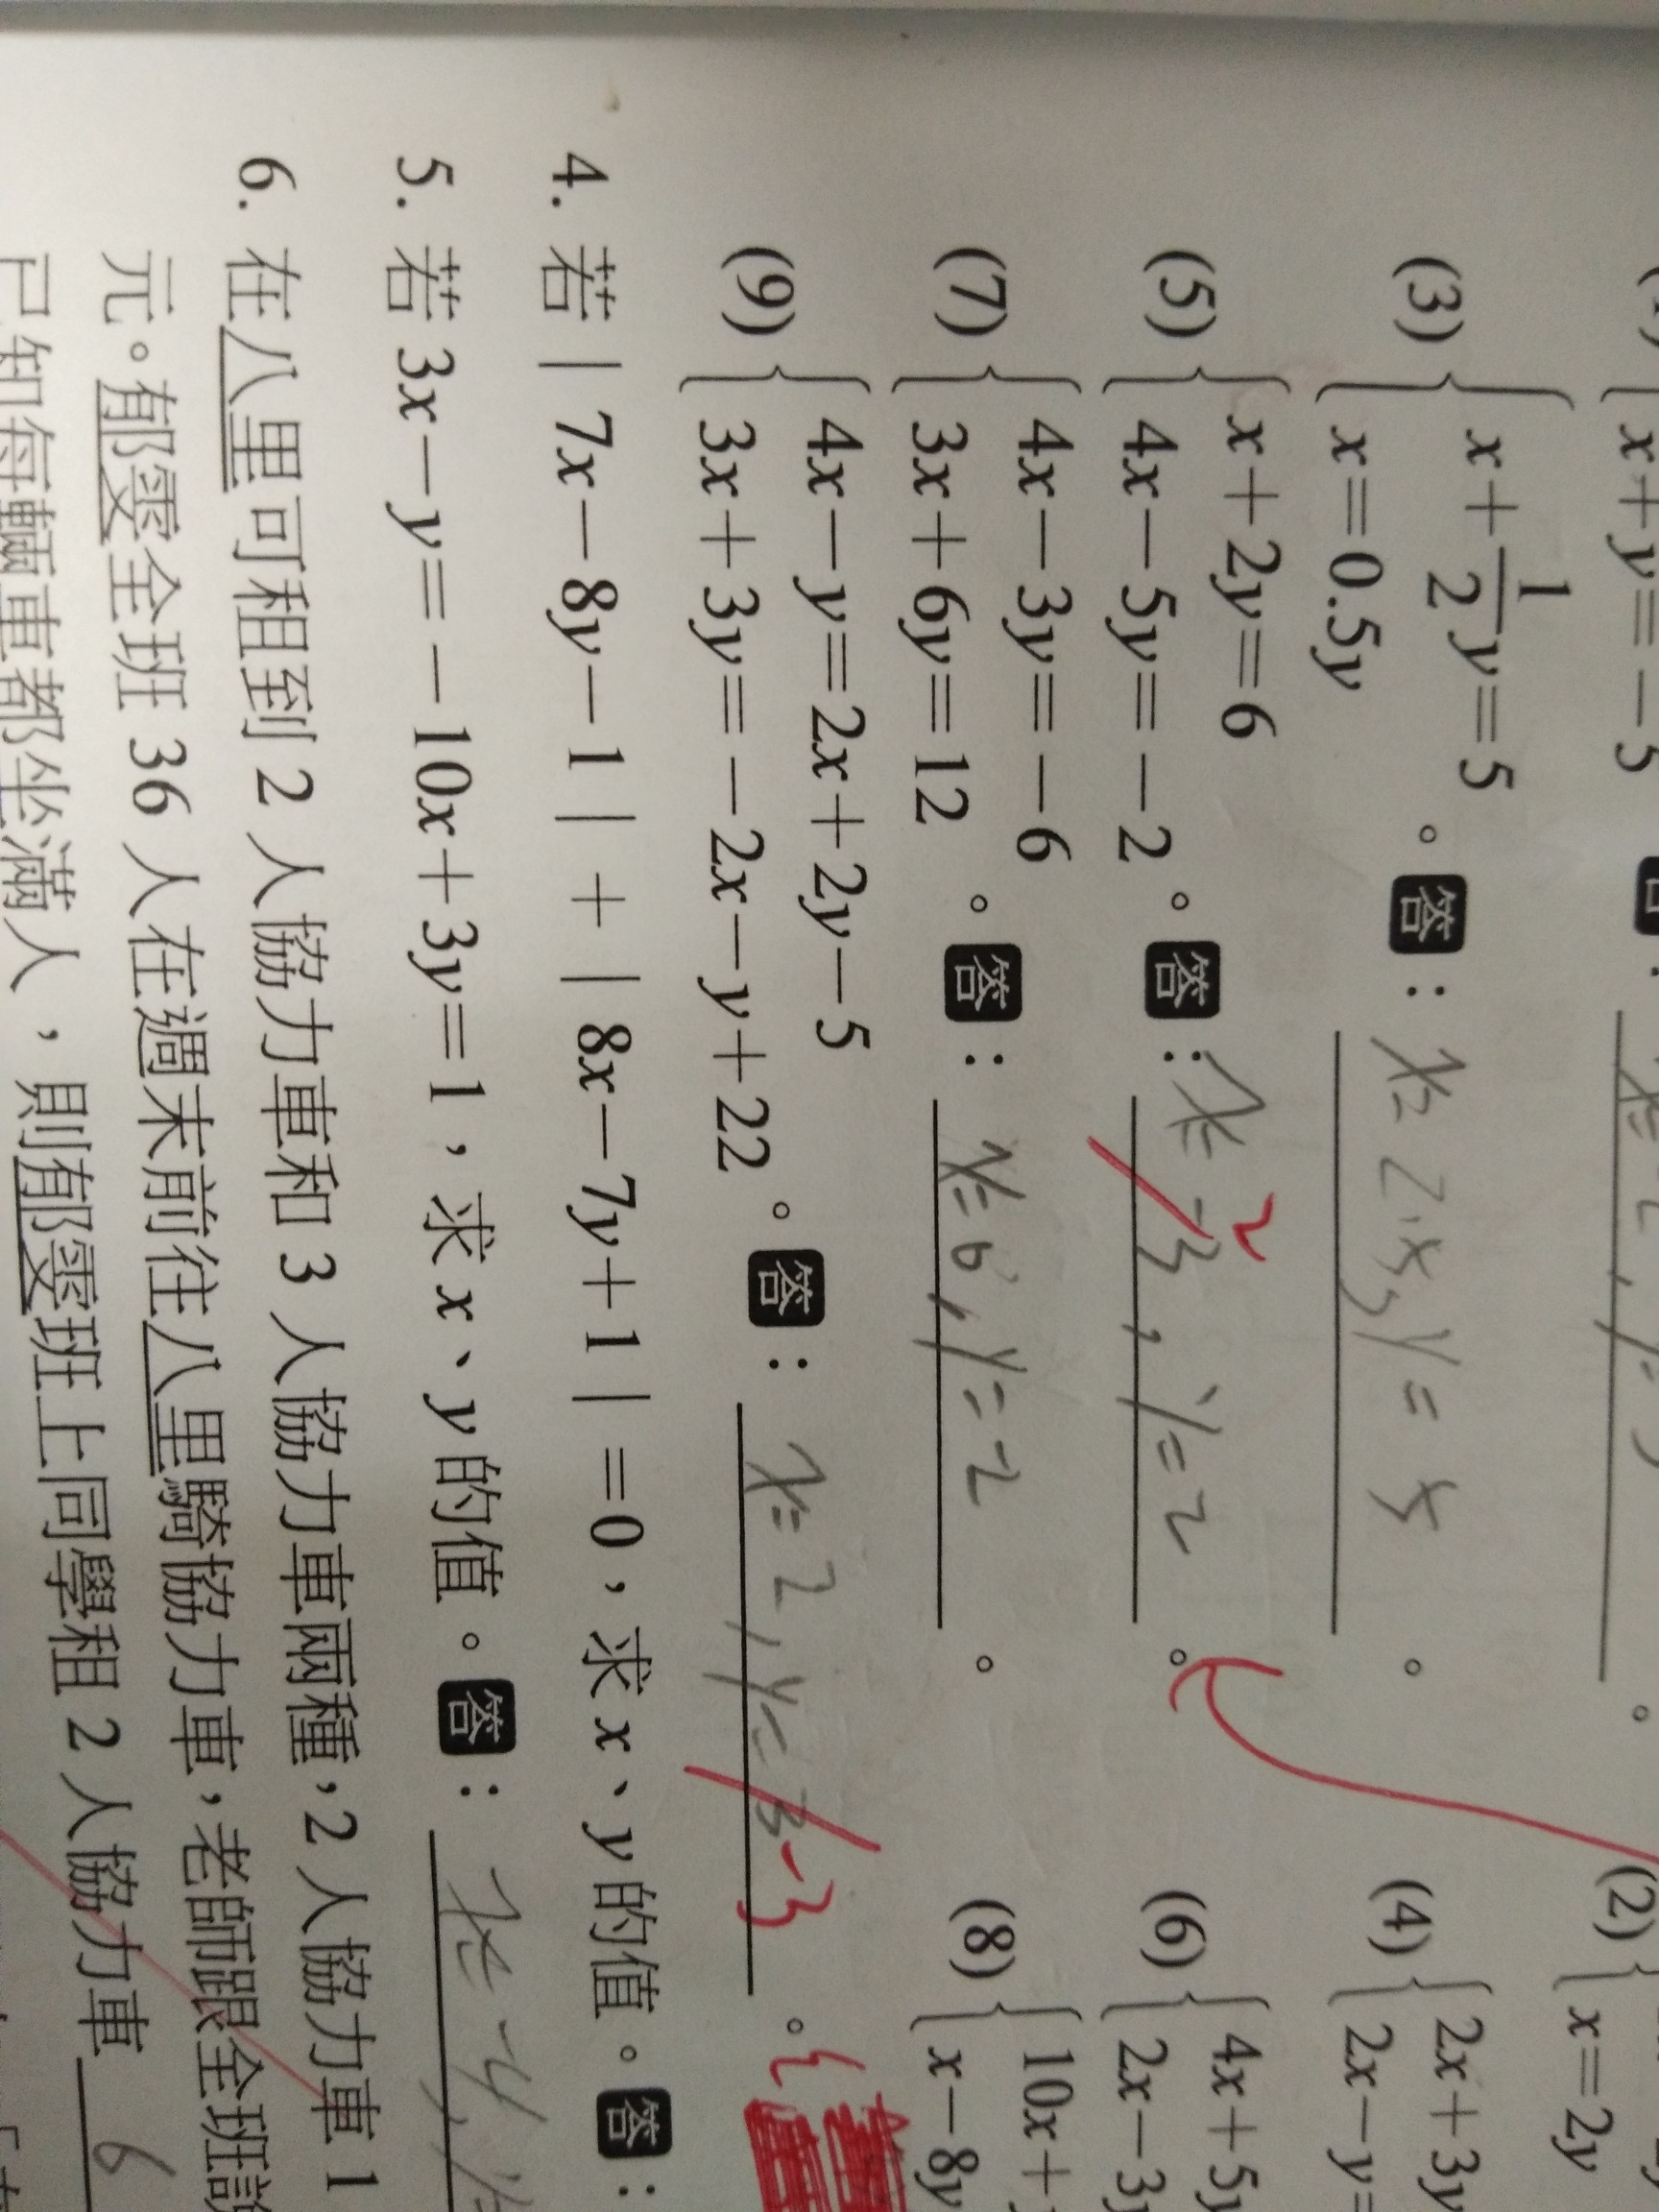 x+y=-5
(3) { x+1/2y=5
x=0.5y 。答：x=2.5,y=5 。
(5) { x+2y=6
4x-5y=-2 。答：x=-3 2,y=2 。
(7) { 4x-3y=-6
3x+6y=12 。答：x=6,y=-2 。
(9) { 4x-y=2x+2y-5
3x+3y=-2x-y+22 。答：x=2,y=3 -3 。
(2)
x=2y
(4) { 2x+3y
2x-y=
(6) { 4x+5y
2x-3y
(8) { 10x+
x-8y
4. 若｜7x-8y-1｜+｜8x-7y+1｜=0，求 x、y 的值。答：
5. 若 3x-y=-10x+3y=1，求 x、y 的值。答：x=-4,y=
6. 在八里可租到 2 人協力車和 3 人協力車兩種，2 人協力車 1
元。郁雯全班 36 人在週末前往八里騎協力車，老師跟全班說
已知每輛車都坐滿人，則郁雯班上同學租 2 人協力車 6